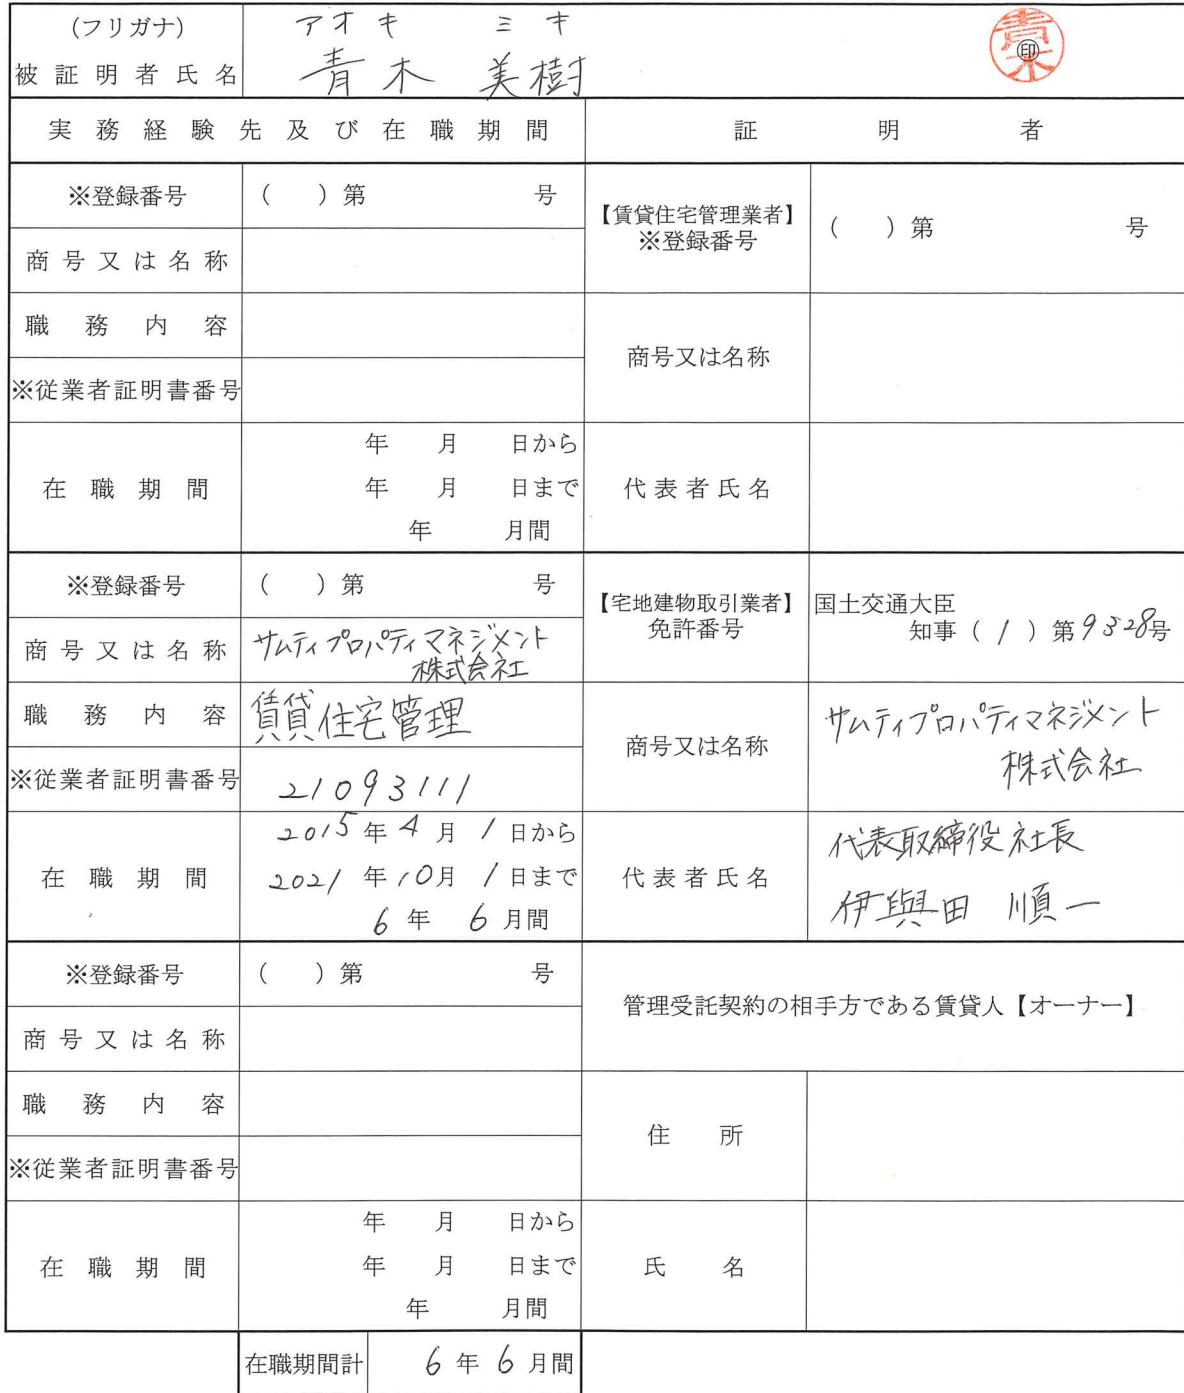 (フリガナ) アオキ ミキ
被証明者氏名 青木 美樹 ㊞ 青木
実務経験先及び在職期間 証明者
※登録番号 ( )第 号
【賃貸住宅管理業者】
※登録番号 ( )第 号
商号又は名称
職務内容
商号又は名称
※従業者証明書番号
年 月 日から
在職期間 年 月 日まで
年 月間
代表者氏名
※登録番号 ( )第 号
【宅地建物取引業者】
免許番号
国土交通大臣
知事(1)第9528号
商号又は名称 サムティプロパティマネジメント
株式会社
職務内容 賃貸住宅管理
商号又は名称 サムティプロパティマネジメント
株式会社
※従業者証明書番号 21093111
2015年4月1日から
在職期間 2021年10月1日まで
6年6月間
代表者氏名
代表取締役社長
伊與田 順一
※登録番号 ( )第 号
管理受託契約の相手方である賃貸人【オーナー】
商号又は名称
職務内容
住所
※従業者証明書番号
年 月 日から
在職期間 年 月 日まで
年 月間
氏名
在職期間計 6年6月間